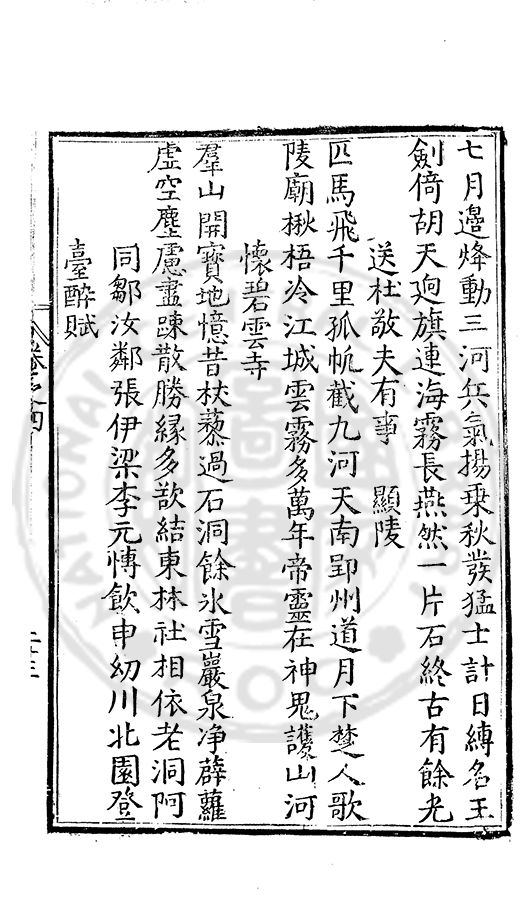 七月邊烽動三河兵氣揚乗秋發猛士計日縛名王
劍倚胡天逈旗連海霧長燕然一片石終古有餘光
送杜敬夫有事　顯陵
匹馬飛千里孤帆截九河天南郢州道月下楚人歌
陵廟楸梧冷江城雲霧多萬年帝靈在神鬼護山河
懷碧雲寺
羣山開寶地憶昔杖藜過石洞餘氷雪巖泉净薜蘿
虛空塵慮盡踈散勝緣多欲結東林社相依老洞阿
同鄒汝鄰張伊梁李元愽飲申幼川北園登
臺醉賦
卷之四
二十三